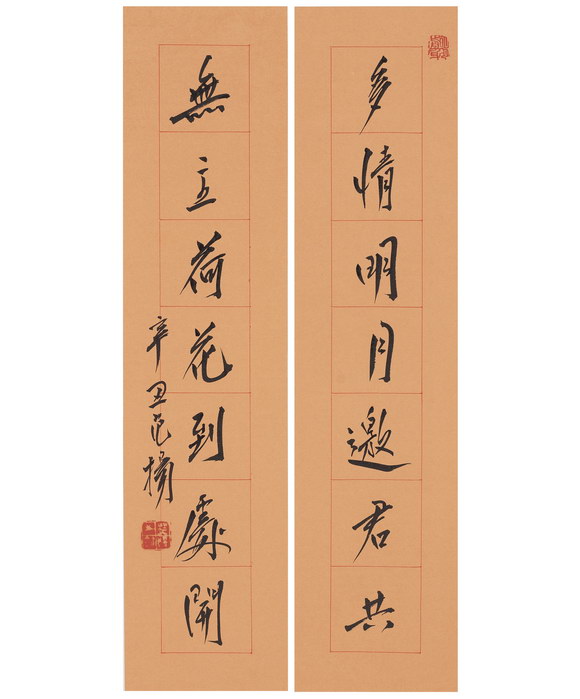 多情明月邀君共
無主荷花到處開
辛丑范揚